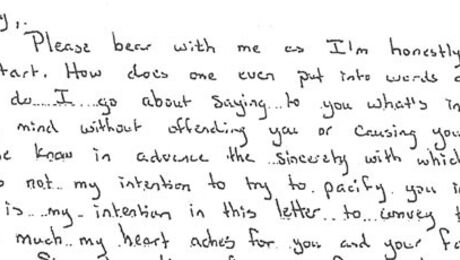 y,.
Please bear with me as I'm honestly
tart. How does one even put into words
do......I....go about saying...to you what's in
mind without offending you or causing you
know in advance the sincerity with which
not.. my intention to try to pacify you i
is....my intention in this letter..to...convey t
much..my heart aches for you and your fa